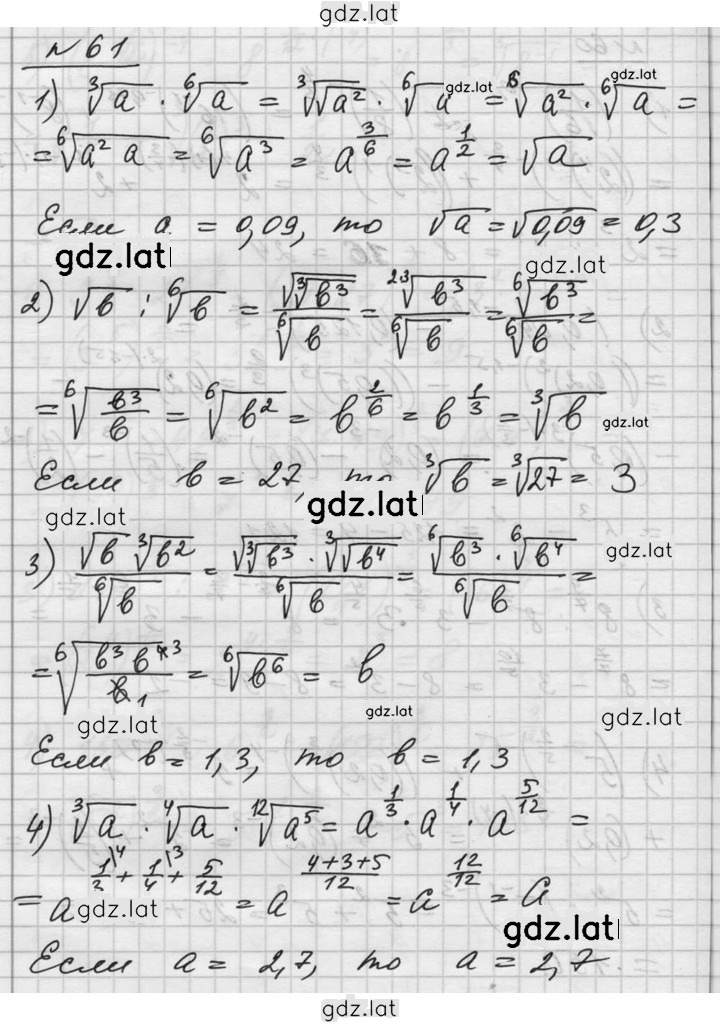 gdz.lat
№ 61
1) ∛a · ⁶√a = ∛√a² · ⁶√a = ⁶√a² · ⁶√a =
gdz.lat gdz.lat
= ⁶√(a² a) = ⁶√a³ = a^(3/6) = a^(1/2) = √a
Если a = 0,09, то √a = √0,09 = 0,3
gdz.lat gdz.lat
2) √b : ⁶√b = √∛b³ / ⁶√b = ²·³√b³ / ⁶√b = ⁶√b³ / ⁶√b =
= ⁶√(b³/b) = ⁶√b² = b^(2/6) = b^(1/3) = ∛b gdz.lat
Если b = 27, то ∛b = ∛27 = 3
gdz.lat gdz.lat
3) √b ∛b² / ⁶√b = √∛b³ · ∛√b⁴ / ⁶√b = ⁶√b³ · ⁶√b⁴ / ⁶√b =
gdz.lat
= ⁶√(b³ b⁴ ³ / b 1) = ⁶√b⁶ = b
gdz.lat gdz.lat gdz.lat
Если b = 1,3, то b = 1,3
4) ∛a · ⁴√a · ¹²√a⁵ = a^(1/3) · a^(1/4) · a^(5/12) =
= a^(1/3\4 + 1/4\3 + 5/12) = a^((4+3+5)/12) = a^(12/12) = a
gdz.lat gdz.lat
Если a = 2,7, то a = 2,7
gdz.lat